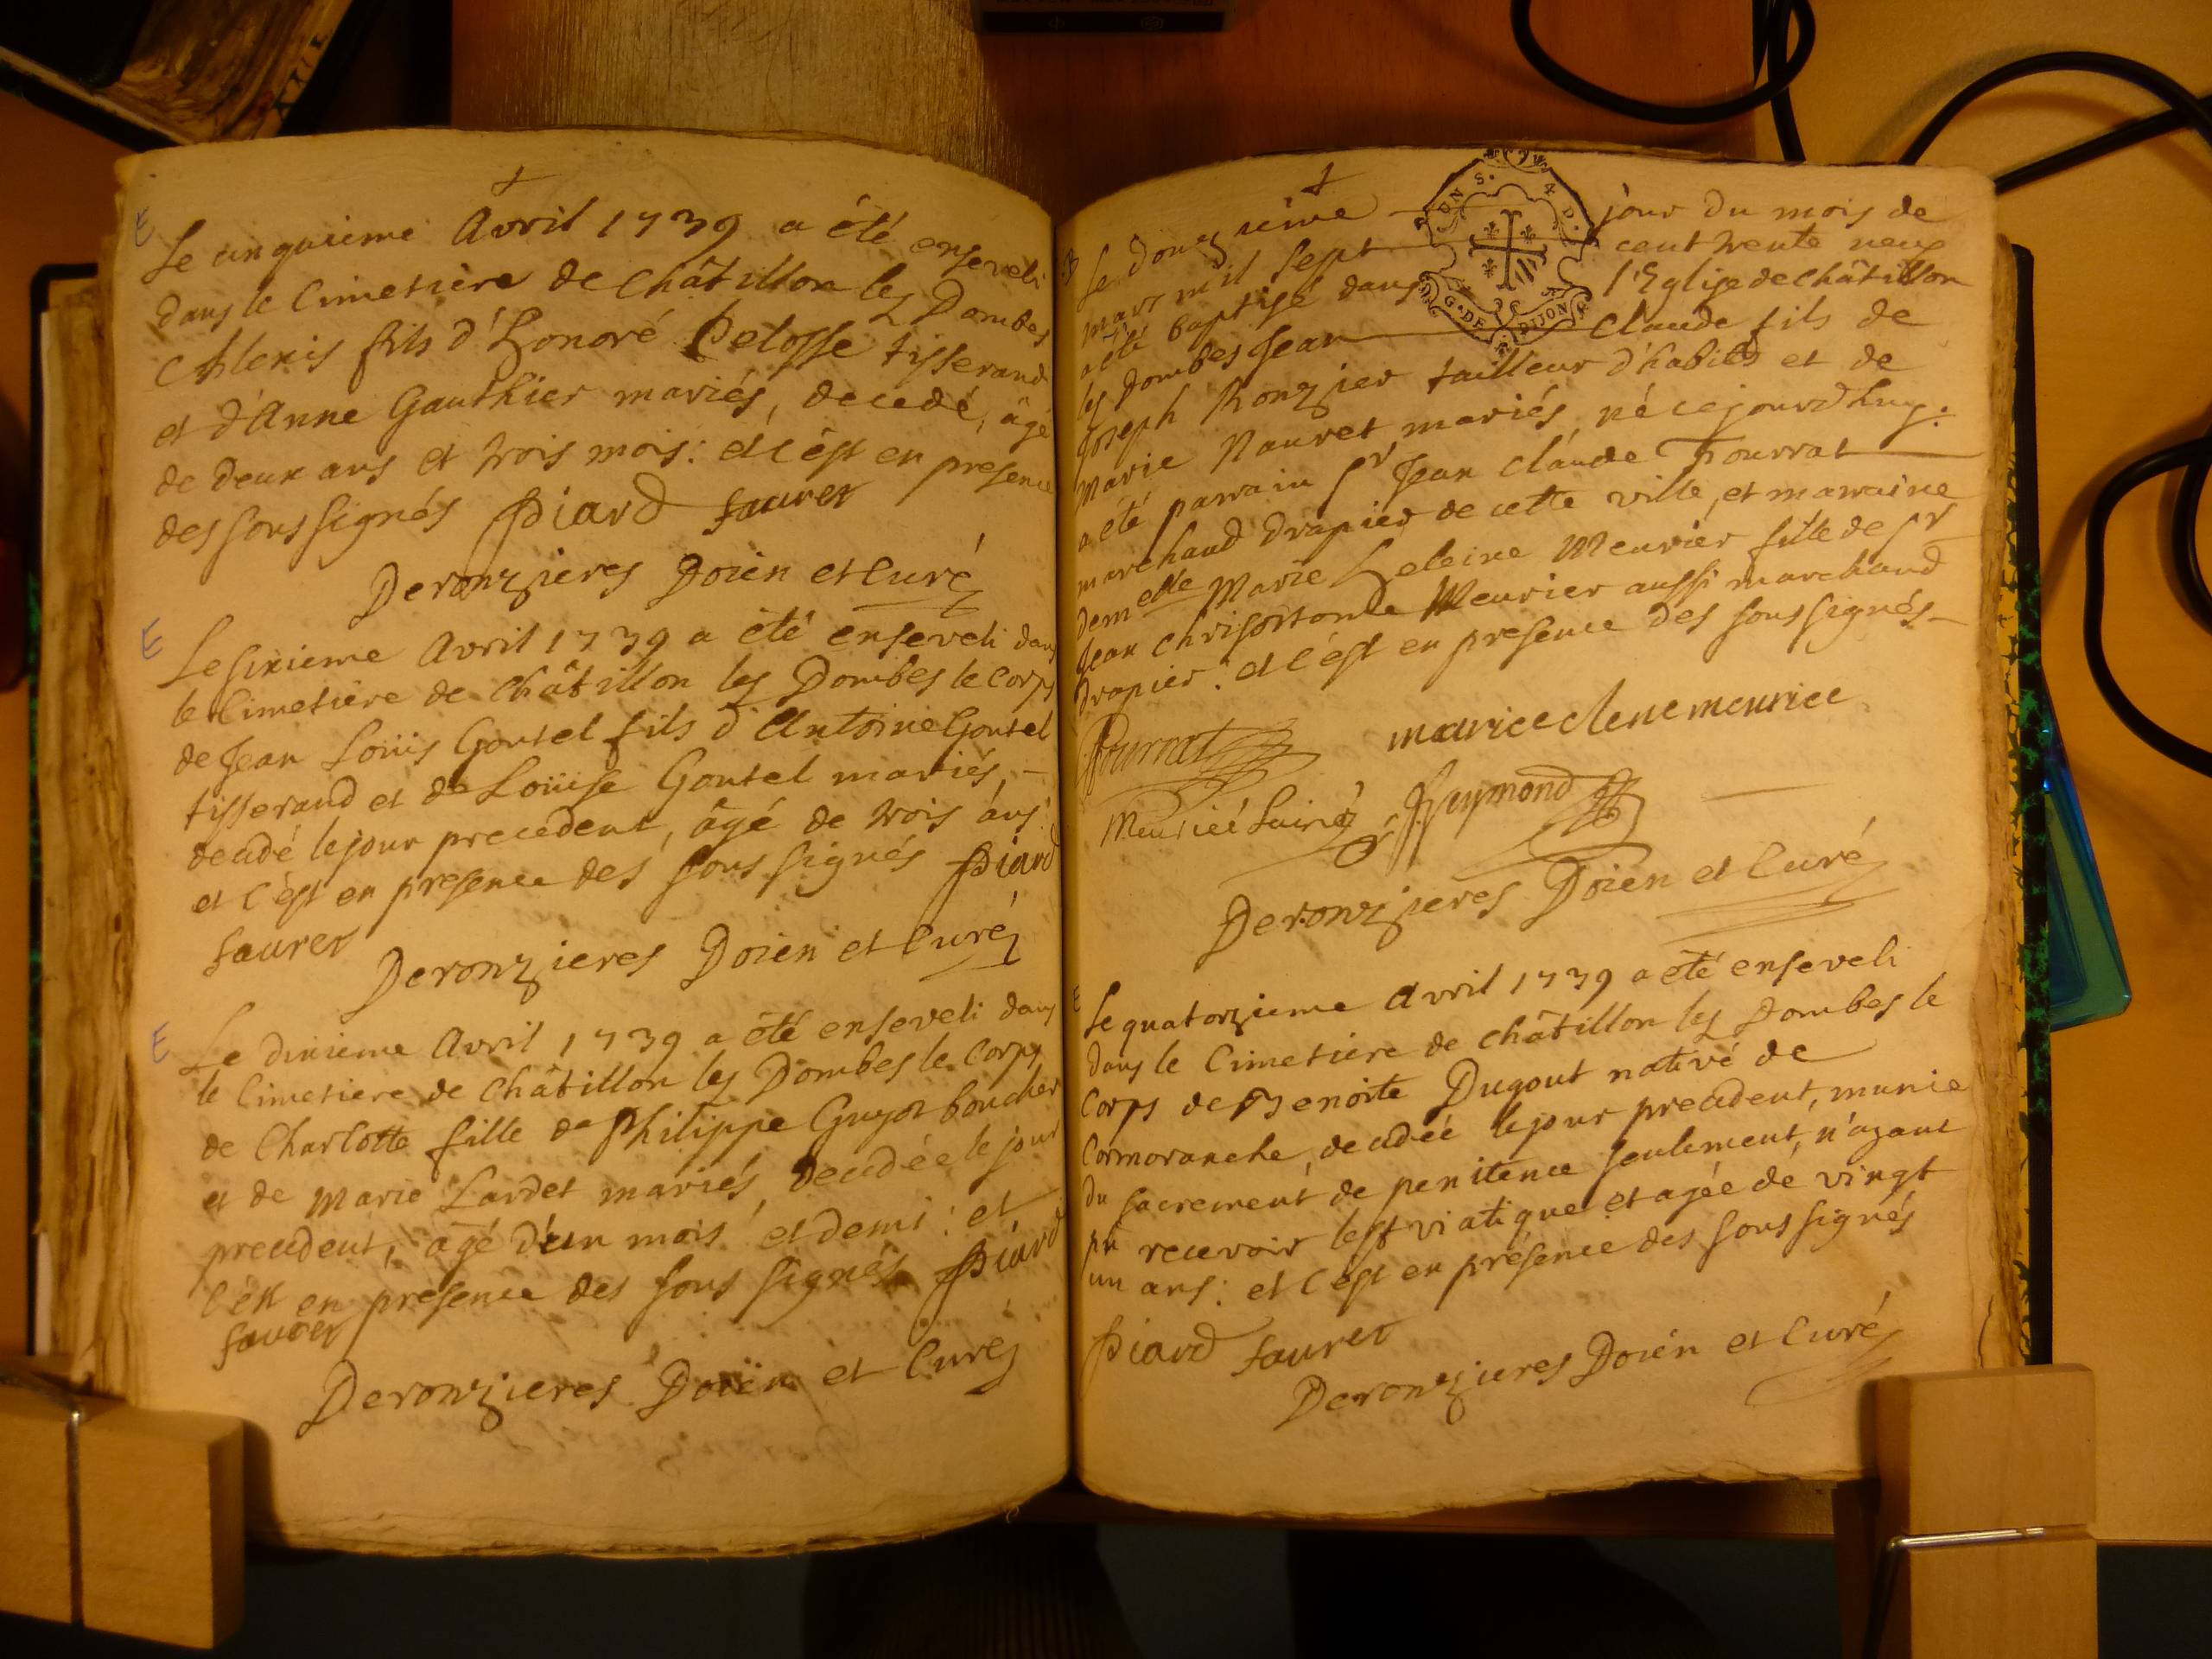 E
Le cinquieme Avril 1739 a été enseveli
dans le Cimetière de Châtillon les Dombes
Alexis fils d'Honoré Pelosse tisserand
et d'Anne Gauthier mariés, decedé, âgé
de deux ans et trois mois: et c'est en presence
des soussignés Piard Sauret
Deronzieres Doïen et Curé
E
Le sixieme Avril 1739 a été enseveli dans
le Cimetiere de Châtillon les Dombes le Corps
de Jean Loüis Goutel fils d'Antoine Goutel
tisserand et de Loüise Goutel mariés, -
decedé le jour precedent, âgé de trois ans
et c'est en presence des sous signés Piard
Sauret
Deronzieres Doïen et Curé
E
Le dixieme Avril 1739 a été enseveli dans
le Cimetiere de Châtillon les Dombes le Corps
de Charlotte fille de Philippe Guyot boucher
et de Marie Lardet mariés, decedée le jour
precedent, âgé d'un mois et demi: et
c'est en presence des sous signés Piard
Sauret
Deronzieres Doïen et Curé
B
Le douzieme jour du mois de
mars mil sept cent trente neuf
a été baptisé dans l'Eglise de Châtillon
les Dombes Jean Claude fils de
Joseph Ronzier tailleur d'habits et de
Marie Nauret mariés, né cejourdhuy.
a été parrain Sr Jean Claude Fourrat
marchand drapier de cette ville, et marraine
demelle Marie Heleine Meurier fille de Sr
Jean Chrisostome Meurier aussi marchand
drapier: et c'est en presence des sous signés -
G. DE DIJON
UN S. 4 D.
meurice
Reymond
Deronzieres Doïen et Curé
E
Le quatorzieme Avril 1739 a été enseveli
dans le Cimetiere de Châtillon les Dombes le
Corps de Benoite Dugout native de
Cormoranche, decedée le jour precedent, munie
du sacrement de penitence seulement, n'ayant
pu recevoir le st viatique et agée de vingt
un ans: et c'est en présence des sous signés
Piard Sauret
Deronzieres Doïen et Curé